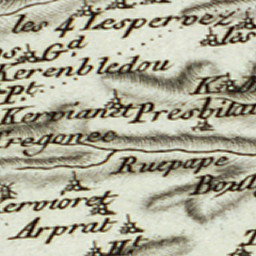 les 4 Lespervez
Gd
Kerenbledou
Pt
K
Kervianet Presbital
Tregonec
Ruepape
Boul
Kervioret
Arprat
Ht